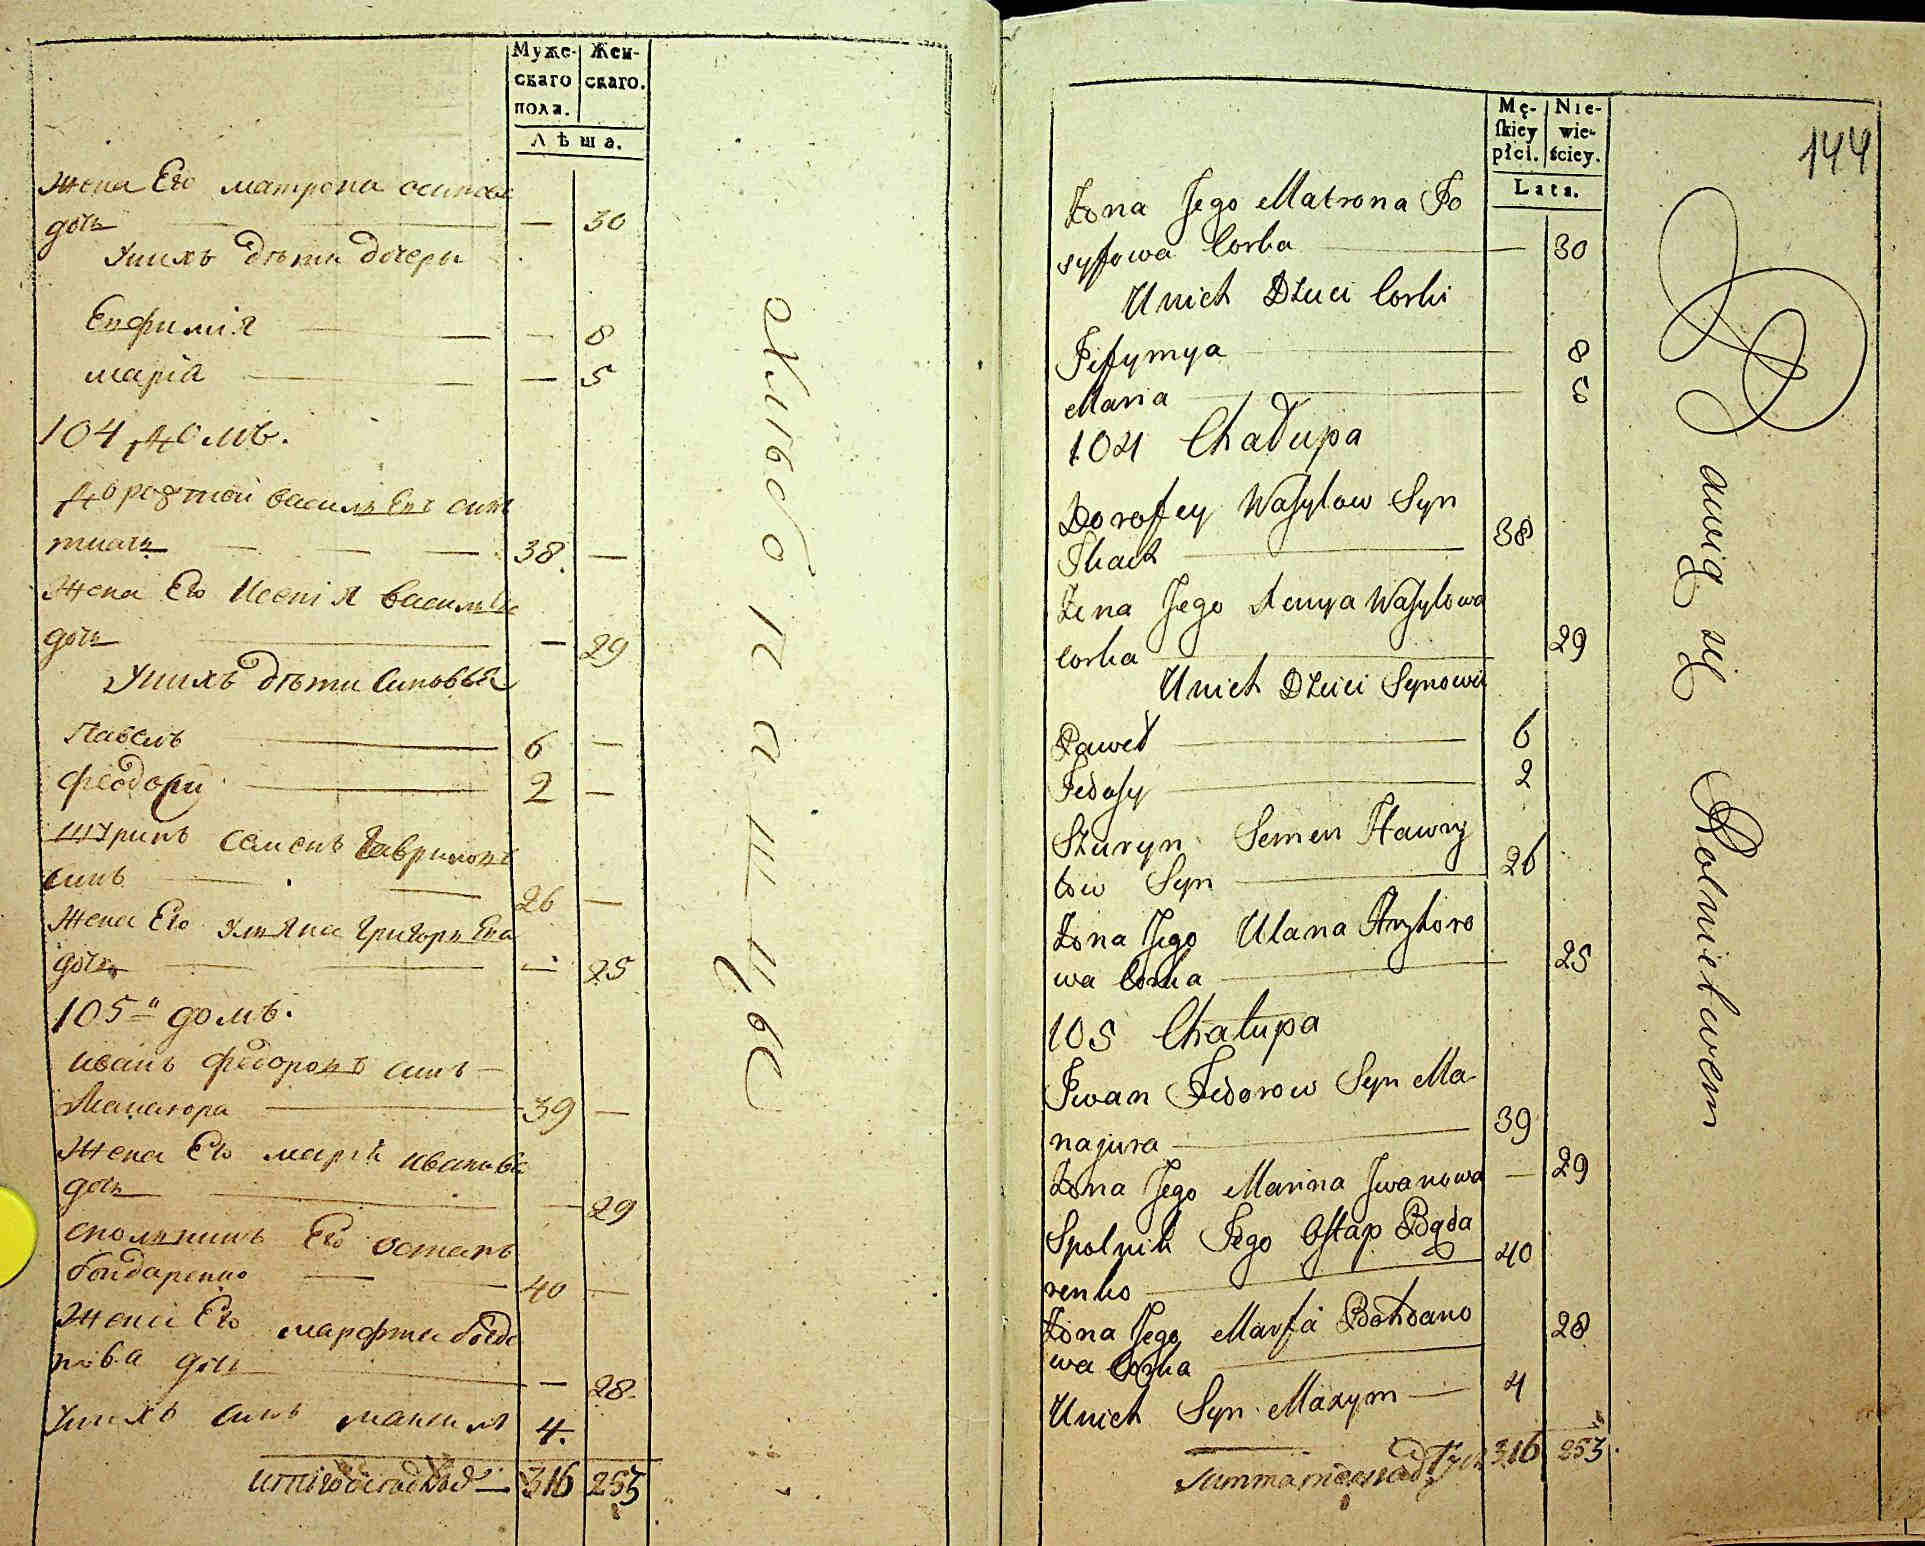 Муже-
скаго
пола.
Жен-
скаго.
Лѣта.
Жена Его матрона осипова
дочь — 30
Унихъ дѣти дочеры
Евфимія — 8
марія — 5
104 домъ.
Дорофтей василевъ синъ
ткачь — 38. —
Жена Его Ксенія василева
дочь — 29
Унихъ дѣти Синовья
Павелъ 6 —
Феодосий 2 —
Шуринъ Семенъ Гавриловъ
синъ 26 —
Жена Его Уляна Григорьева
дочь — 25
105й домъ.
иванъ федоровъ синъ
Манаюра 39 —
Жена Его марія иванова
дочь — 29
спольникъ Его остапъ
бондаренко 40 —
Жена Его марфта богда
нова дочь — 28.
Унихъ синъ максимъ 4.
316 253
хлебопашцы
Mę-
skiey
płci.
Nie-
wie-
ściey.
Lata.
144
Żona Jego Matrona Jo
syfowa Corka — 30
Unich Dzieci Corki
Jefymya 8
Maria 5
104 Chałupa
Dorofey Wasylow Syn
Tkacz 38
Żona Jego Xenya Wasylowa
Corka 29
Unich Dzieci Synowie
Paweł 6
Fedosy 2
Szuryn Semen Hawry
low Syn 26
Żona Jego Ulana Hryhoro
wa Corka 25
105 Chałupa
Iwan Fedorow Syn Ma
najura 39
Żona Jego Marina Iwanowa — 29
Spolnik Jego Ostap Bąda
renko 40
Żona Jego Marfa Bohdano
wa Corka 28
Unich Syn Maxym — 4
Summa 316 253
Bawią się Rolnictwem